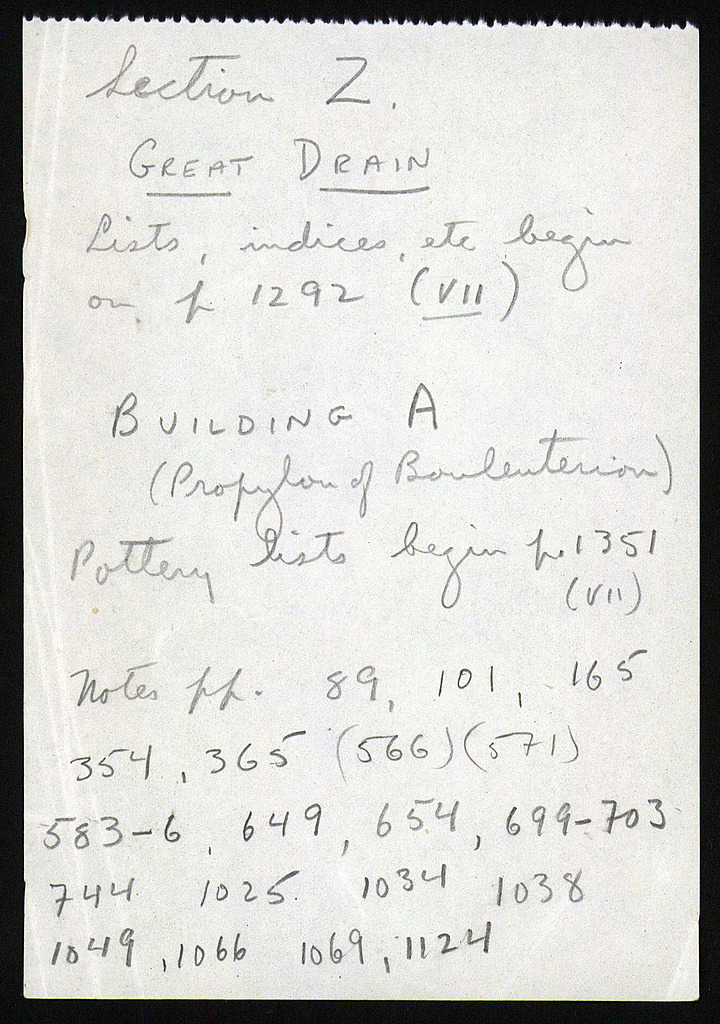 Section Z.
GREAT DRAIN
Lists, indices, etc begin
on p 1292 (VII)
BUILDING A
(Propylon of Bouleuterion)
Pottery lists begin p. 1351
(VII)
Notes pp. 89, 101, 165
354, 365 (566) (571)
583-6, 649, 654, 699-703
744 1025 1034 1038
1049, 1066 1069, 1124